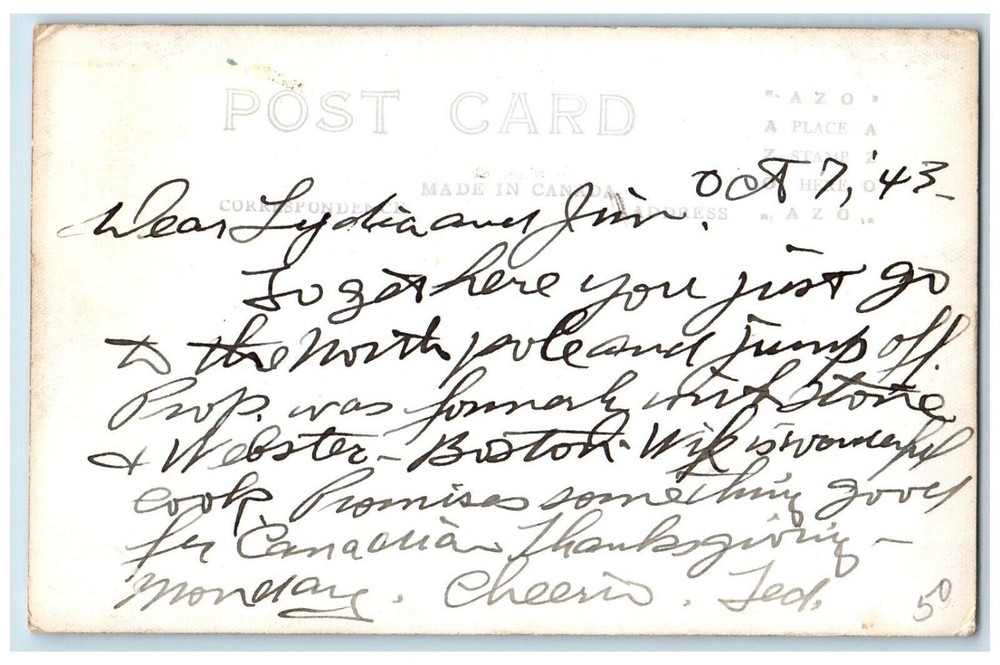 POST CARD
" A Z O "
A PLACE A
Z STAMP Z
O HERE O
" A Z O "
MADE IN CANADA
CORRESPONDENCE
ADDRESS
Oct 7, '43-
Dear Lydia and Jim.
To get here you just go
to the North pole and jump off.
Prop. was formerly with Stone
& Webster - Boston. Wife is wonderful
cook. Promises something good
for Canadian Thanksgiving -
Monday. Cheerio. Ted.
50